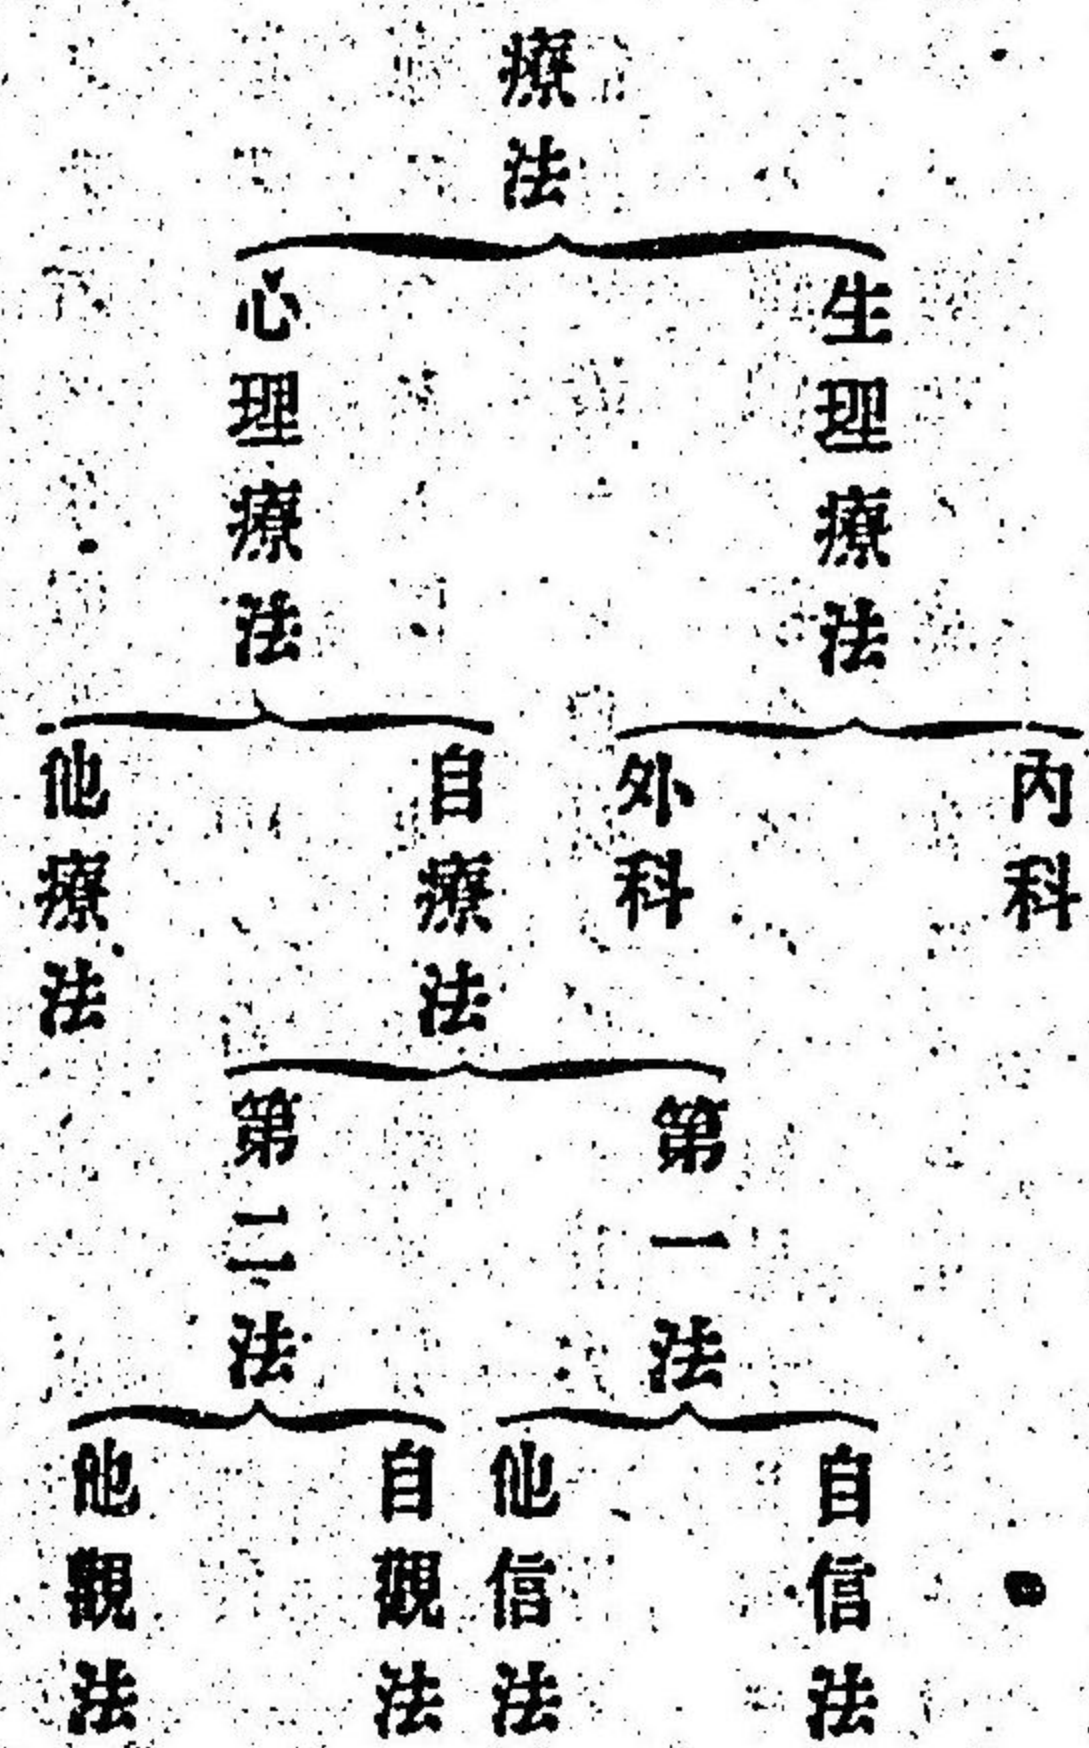 療法
生理療法
心理療法
內科
外科
自療法
他療法
第一法
第二法
自信法
他信法
自觀法
他觀法